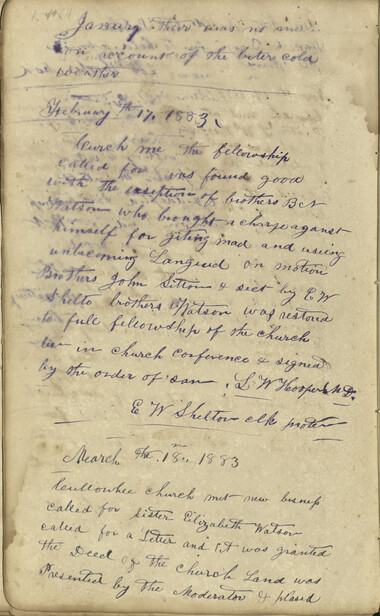 January ther was no
on account of the biter cold
weather
February th 17, 1883,
Church me the fellowship
called for was found good
with the exseption of brothers
Watson who brought a charge against
himself for giting mad and using
unbecoming Languid on motion
Brothers John Sitton & sict by E W
Shelto brothers Watson was restored
to full fellowship of the Church
in church conference & signed
by the order of san. L W Hooper M D.
E W Shelton clk protem
March the 18th 1883
Cullowhee church met new bisnep
called for sister Elizabeth Watson
called for a Leter and it was granted
the Deed of the Church Land was
Presented by the Moderator & plased